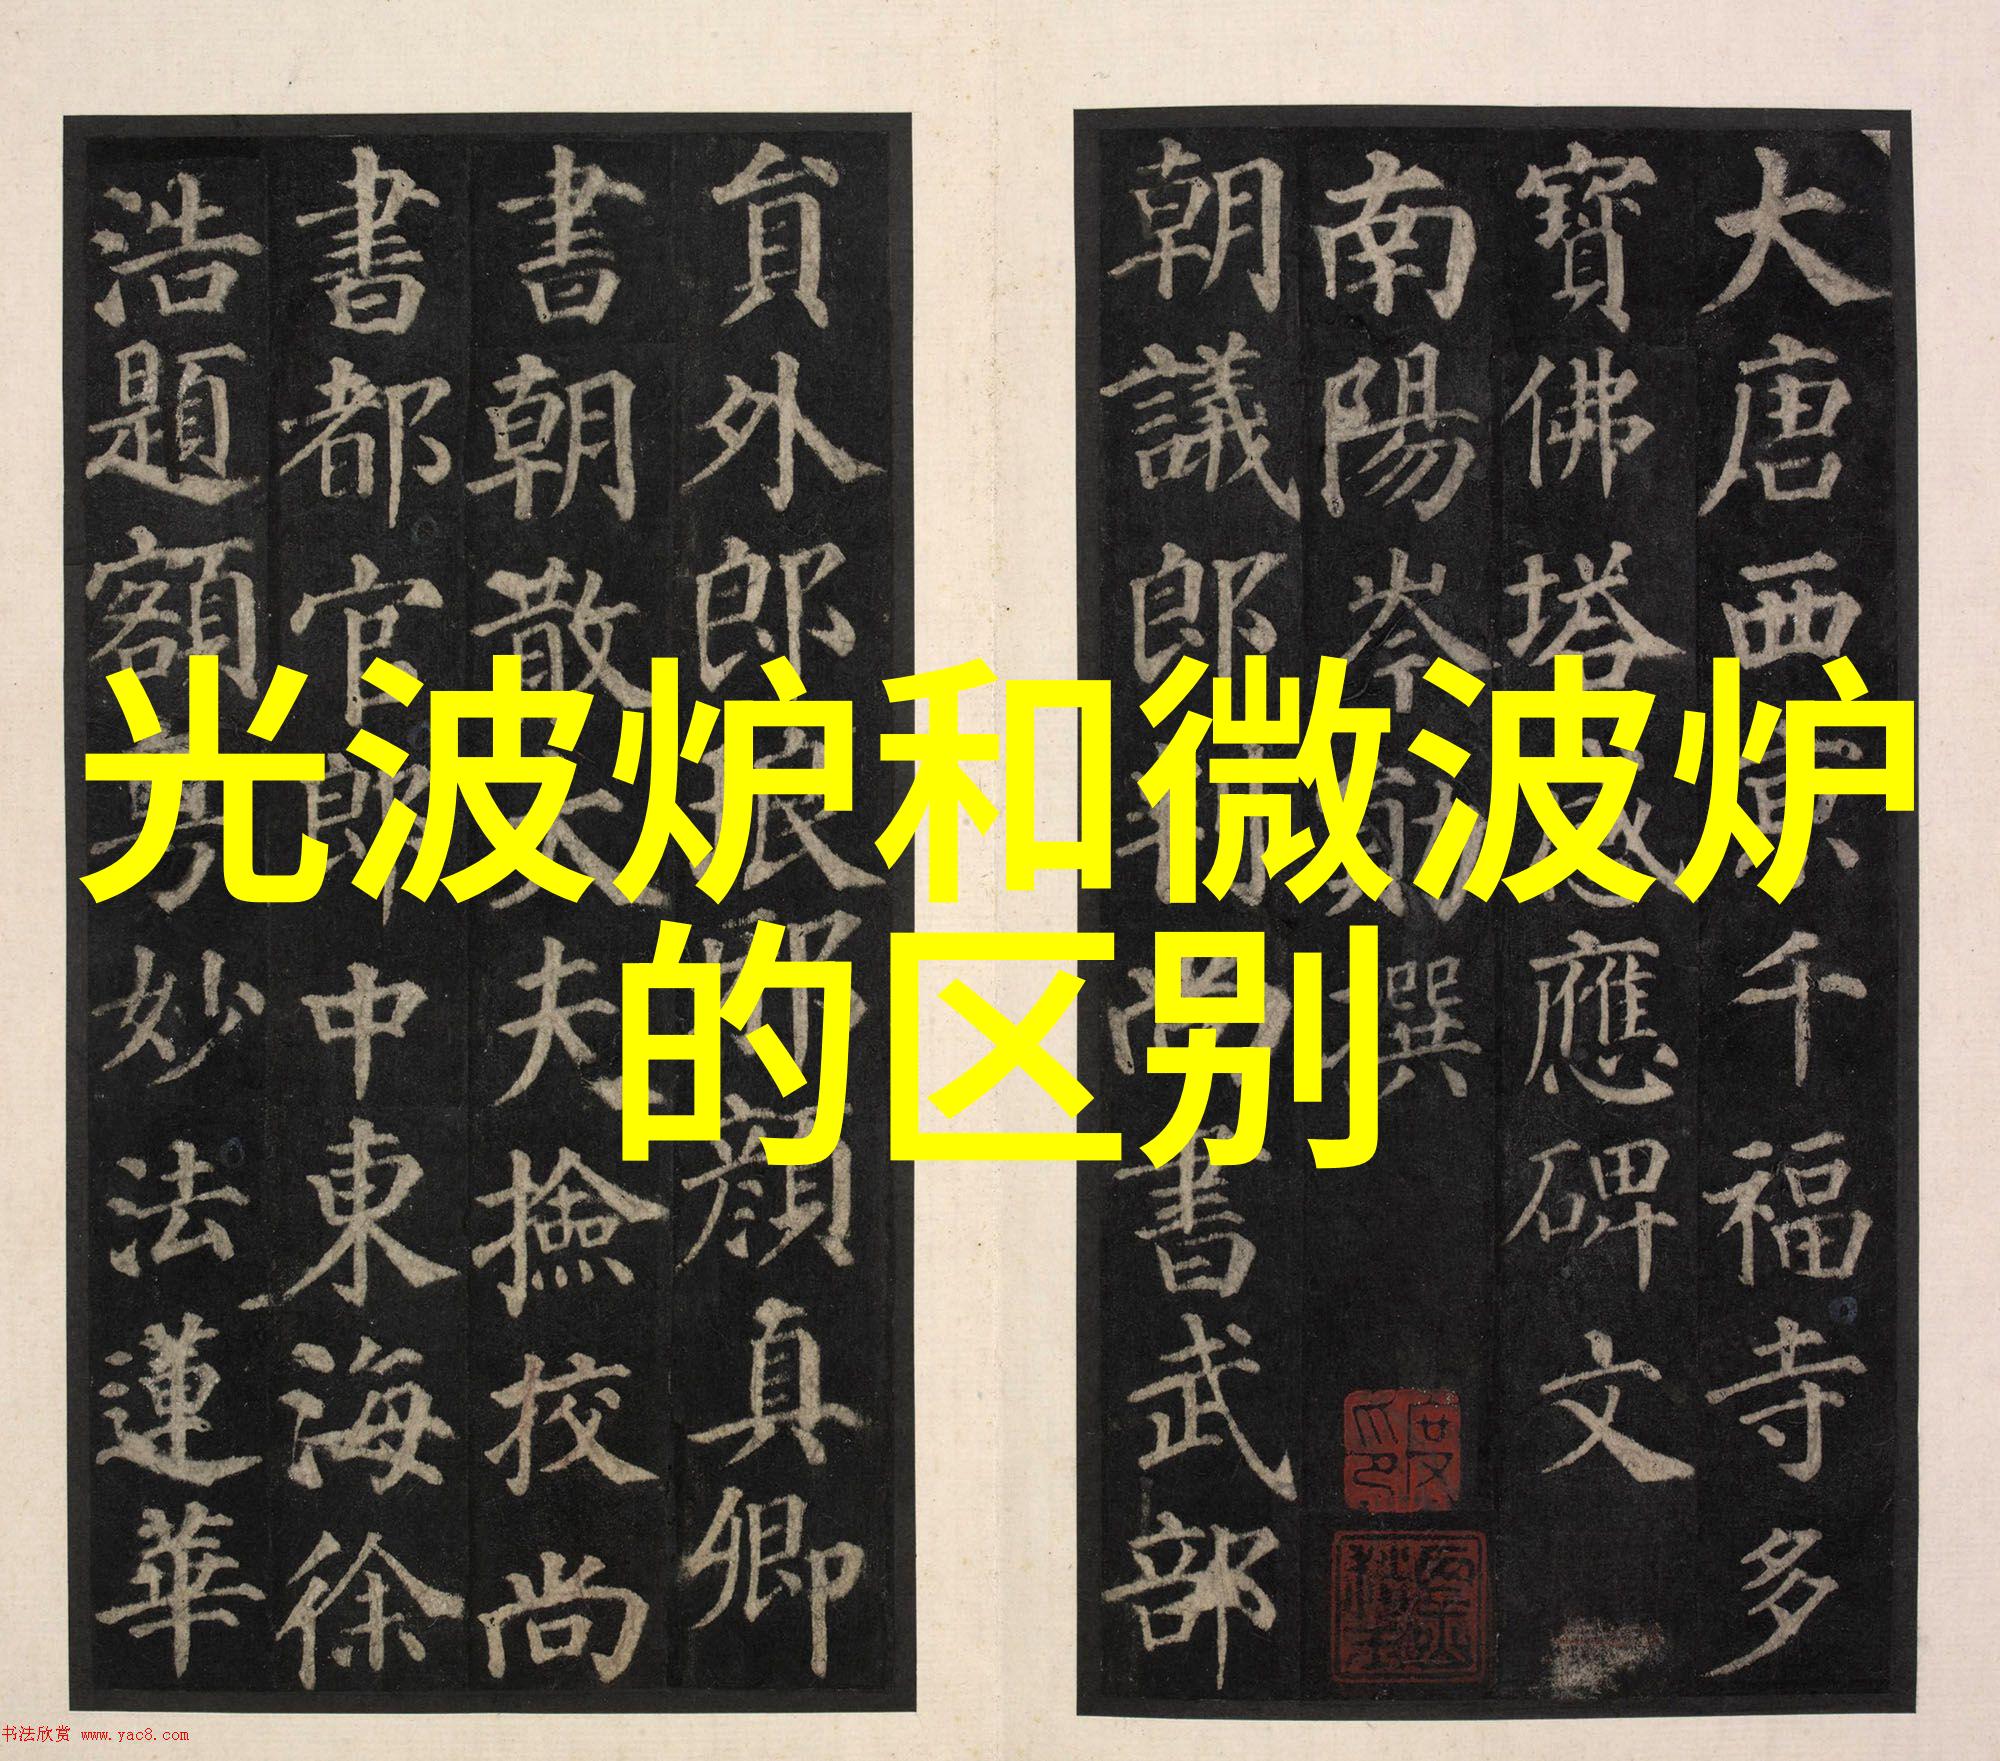 大唐西京千福寺多
寶佛塔感應碑文
南陽岑勛撰
朝議郎判尚書武部
員外郎琅邪顏真卿
書朝散大夫撿校尚
書都官郎中東海徐
浩題額
妙法蓮華
光波炉和微波炉
的区别
书法欣赏 www.yac8.com